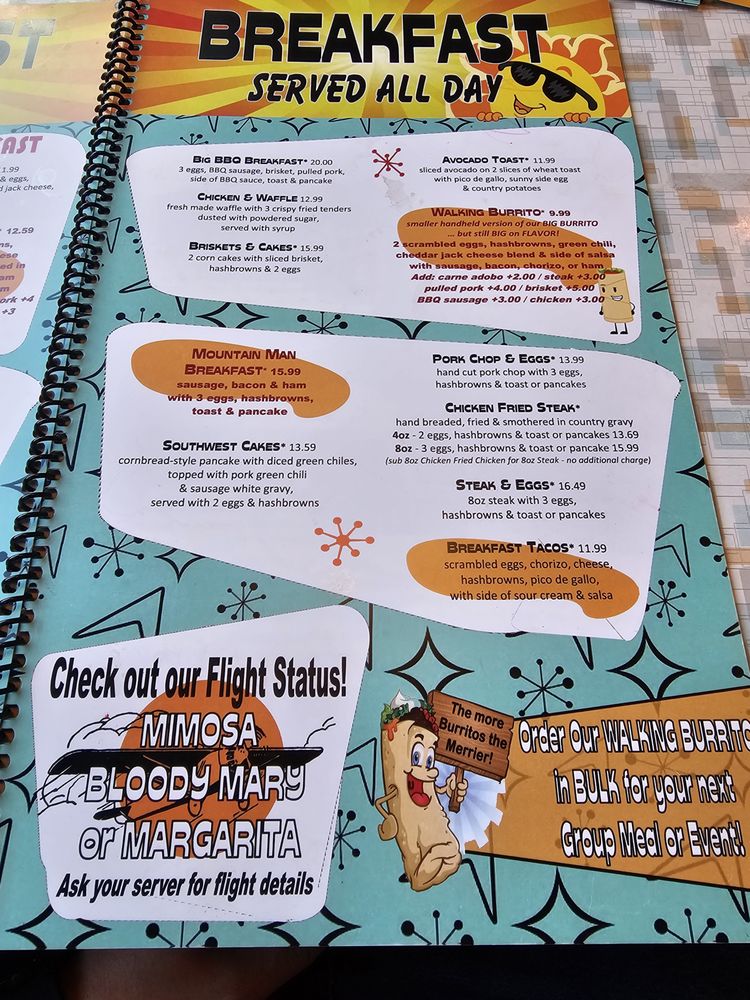 ST
EAST
11.99
& eggs,
d jack cheese,
12.59
ork +4
+3
BREAKFAST
SERVED ALL DAY
BIG BBQ BREAKFAST* 20.00
3 eggs, BBQ sausage, brisket, pulled pork,
side of BBQ sauce, toast & pancake
CHICKEN & WAFFLE 12.99
fresh made waffle with 3 crispy fried tenders
dusted with powdered sugar,
served with syrup
BRISKETS & CAKES* 15.99
2 corn cakes with sliced brisket,
hashbrowns & 2 eggs
AVOCADO TOAST* 11.99
sliced avocado on 2 slices of wheat toast
with pico de gallo, sunny side egg
& country potatoes
WALKING BURRITO* 9.99
smaller handheld version of our BIG BURRITO
... but still BIG on FLAVOR!
2 scrambled eggs, hashbrowns, green chili,
cheddar jack cheese blend & side of salsa
with sausage, bacon, chorizo, or ham
Add: carne adobo +2.00 / steak +3.00
pulled pork +4.00 / brisket +5.00
BBQ sausage +3.00 / chicken +3.00
MOUNTAIN MAN
BREAKFAST* 15.99
sausage, bacon & ham
with 3 eggs, hashbrowns,
toast & pancake
SOUTHWEST CAKES* 13.59
cornbread-style pancake with diced green chiles,
topped with pork green chili
& sausage white gravy,
served with 2 eggs & hashbrowns
PORK CHOP & EGGS* 13.99
hand cut pork chop with 3 eggs,
hashbrowns & toast or pancakes
CHICKEN FRIED STEAK*
hand breaded, fried & smothered in country gravy
4oz - 2 eggs, hashbrowns & toast or pancakes 13.69
8oz - 3 eggs, hashbrowns & toast or pancake 15.99
(sub 8oz Chicken Fried Chicken for 8oz Steak - no additional charge)
STEAK & EGGS* 16.49
8oz steak with 3 eggs,
hashbrowns & toast or pancakes
BREAKFAST TACOS* 11.99
scrambled eggs, chorizo, cheese,
hashbrowns, pico de gallo,
with side of sour cream & salsa
Check out our Flight Status!
MIMOSA
BLOODY MARY
or MARGARITA
Ask your server for flight details
The more
Burritos the
Merrier!
Order Our WALKING BURRITO
in BULK for your next
Group Meal or Event!